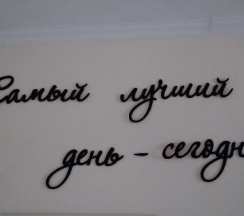 Самый лучший
день - сегодн